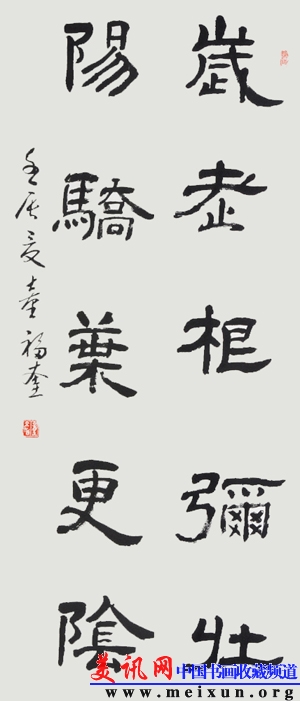 歲老根彌壯
陽驕葉更陰
壬辰夏童福奎
美讯网 中国书画收藏频道
www.meixun.org